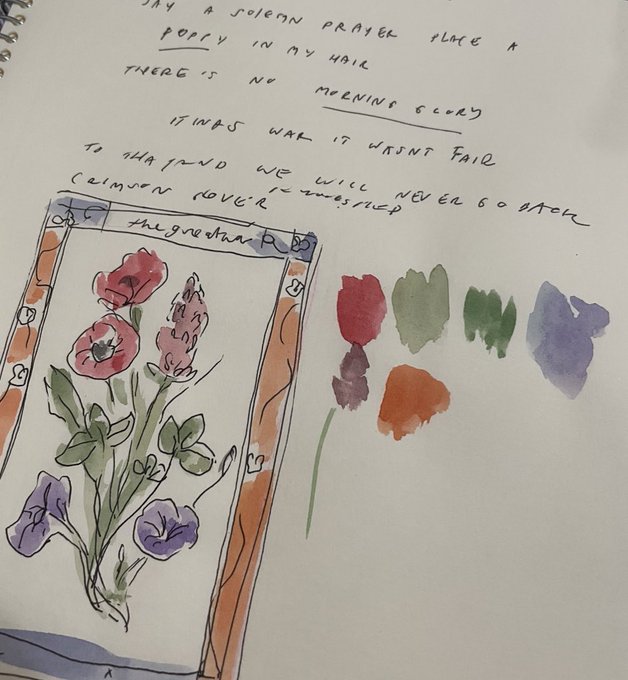 SAY A SOLEMN PRAYER PLACE A
POPPY IN MY HAIR
THERE IS NO MORNING GLORY
IT WAS WAR IT WASNT FAIR
TO THA WE WILL NEVER GO BACK
CRIMSON
the great war